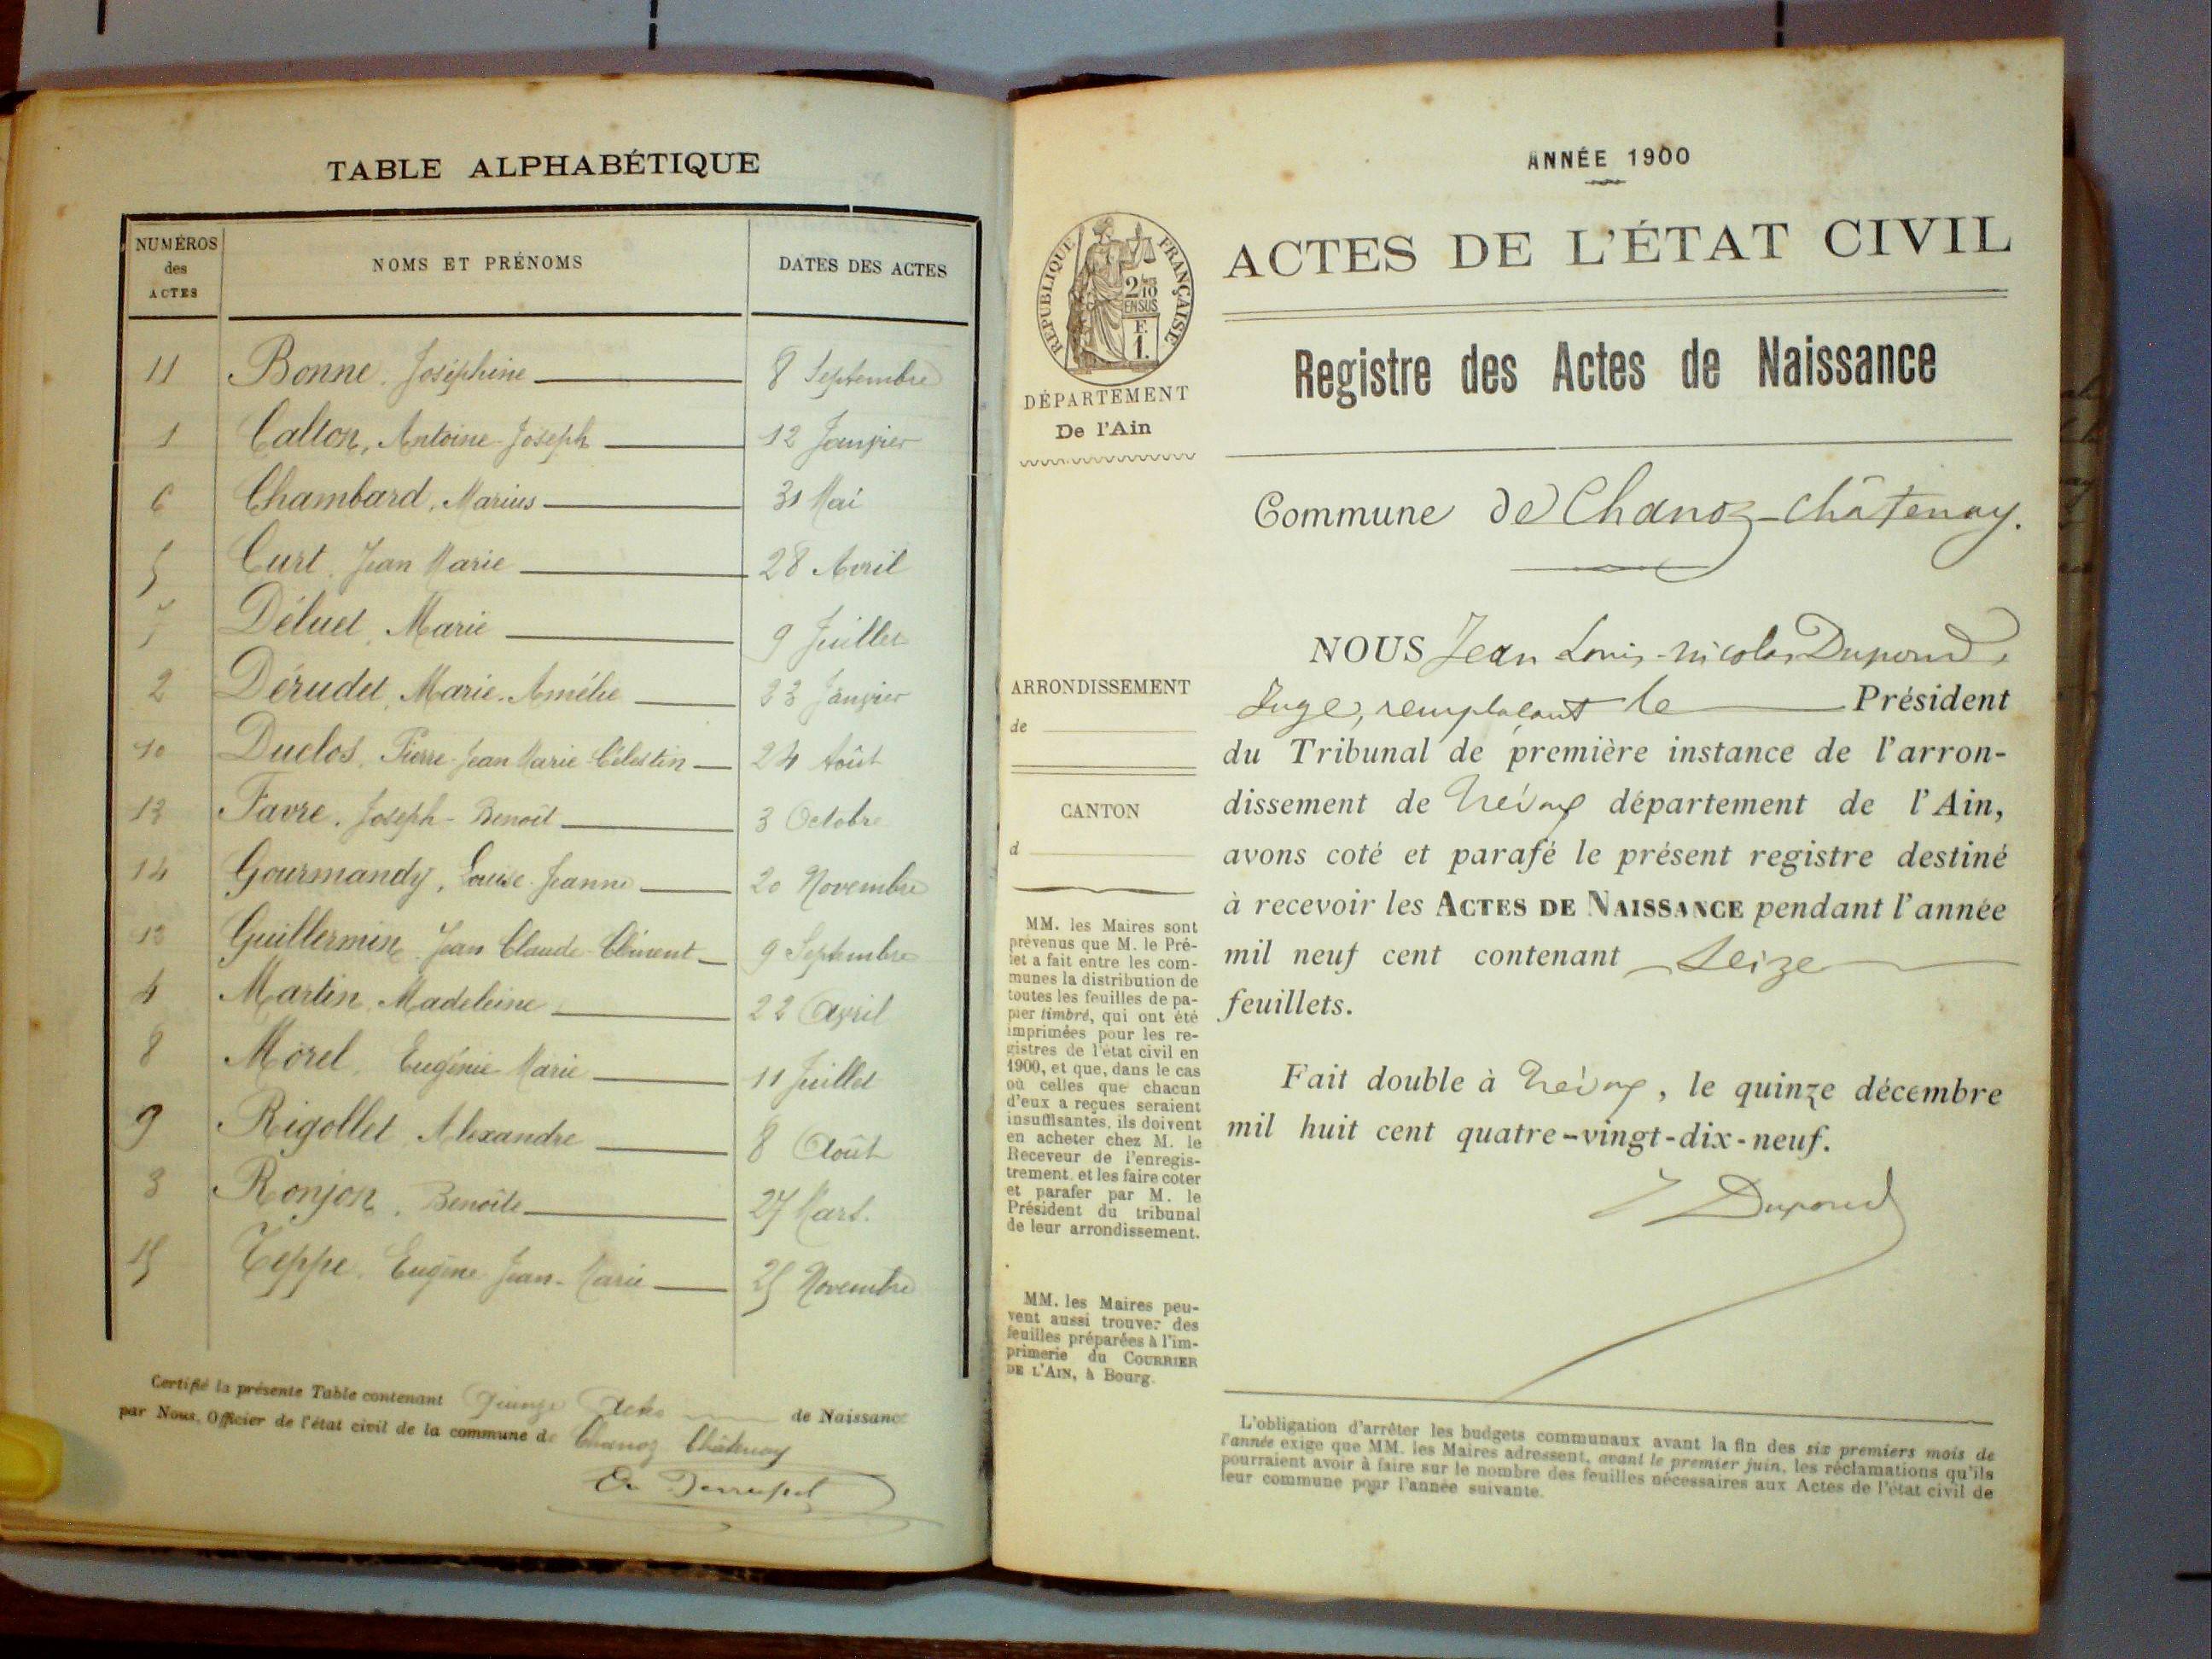 TABLE ALPHABÉTIQUE
NUMÉROS des ACTES NOMS ET PRÉNOMS DATES DES ACTES
11 Bonne, Joséphine 8 Septembre
1 Callon, Antoine-Joseph 12 Janvier
6 Chambard, Marius 31 Mai
5 Curt, Jean Marie 28 Avril
7 Déluet, Marie 9 Juillet
2 Dérudet, Marie-Amélie Janvier
10 Duclos, Pierre-Jean Marie-Célestin 24 Août
13 Favre, Joseph-Benoît 3 Octobre
14 Gourmandy, Louise-Jeanne 20 Novembre
12 Guillermin, Jean Claude-Clément 9 Septembre
4 Martin, Madeleine 22 Avril
8 Morel, Eugénie-Marie 11 Juillet
9 Rigollet, Alexandre 8 Août
3 Ronjon, Benoîte 27 Mars.
15 Teppe, Eugène-Jean-Marie 25 Novembre
Certifié la présente Table contenant Quinze Actes de Naissance
par Nous, Officier de l'état civil de la commune de Chanoz Châtenay
ANNÉE 1900
RÉPUBLIQUE FRANÇAISE
2/10
EN SUS
F.
1.
ACTES DE L'ÉTAT CIVIL
Registre des Actes de Naissance
DÉPARTEMENT
De l'Ain
Commune de Chanoz-Châtenay.
NOUS Jean Louis-Nicolas Dupond,
Juge, remplaçant le Président
du Tribunal de première instance de l'arron-
dissement de Trévoux département de l'Ain,
avons coté et parafé le présent registre destiné
à recevoir les ACTES DE NAISSANCE pendant l'année
mil neuf cent contenant Seize
feuillets.
Fait double à Trévoux, le quinze décembre
mil huit cent quatre-vingt-dix-neuf.
J Dupond
ARRONDISSEMENT
de
CANTON
d
MM. les Maires sont
prévenus que M. le Pré-
fet a fait entre les com-
munes la distribution de
toutes les feuilles de pa-
pier timbré, qui ont été
imprimées pour les re-
gistres de l'état civil en
1900, et que, dans le cas
où celles que chacun
d'eux a reçues seraient
insuffisantes, ils doivent
en acheter chez M. le
Receveur de l'enregis-
trement et les faire coter
et parafer par M. le
Président du tribunal
de leur arrondissement.
MM. les Maires peu-
vent aussi trouver des
feuilles préparées à l'im-
primerie du COURRIER
DE L'AIN, à Bourg.
L'obligation d'arrêter les budgets communaux avant la fin des six premiers mois de
l'année exige que MM. les Maires adressent, avant le premier juin, les réclamations qu'ils
pourraient avoir à faire sur le nombre des feuilles nécessaires aux Actes de l'état civil de
leur commune pour l'année suivante.